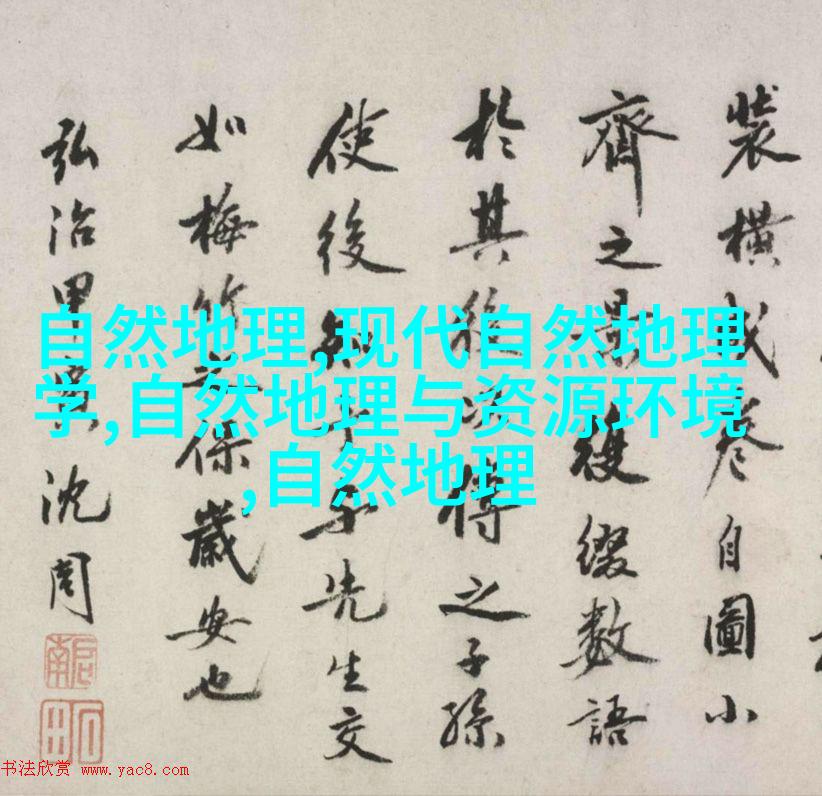 自然地理,现代自然地理
学,自然地理与资源环境
,自然地理
裝橫成卷自圖小
齊之後綴數語
於其後得之子孫
使後知先生交
如梅竹保歲安也
弘治甲寅沈周
啟南
石田
书法欣赏 www.yac8.com